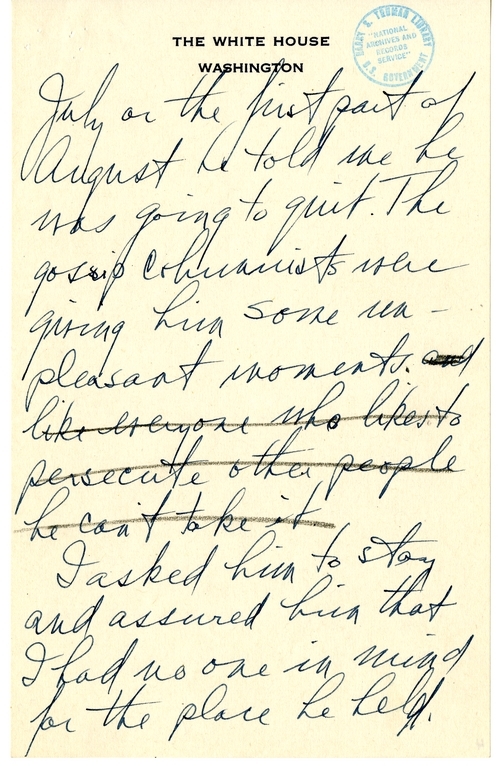 THE WHITE HOUSE
WASHINGTON
HARRY S. TRUMAN LIBRARY
"NATIONAL
ARCHIVES AND
RECORDS
SERVICE"
U.S. GOVERNMENT
July or the first part of
August he told me he
was going to quit. The
gossip columnists were
giving him some un-
pleasant moments. and
like everyone who likes to
persecute other people
he can't take it.
I asked him to stay
and assured him that
I had no one in mind
for the place he held.